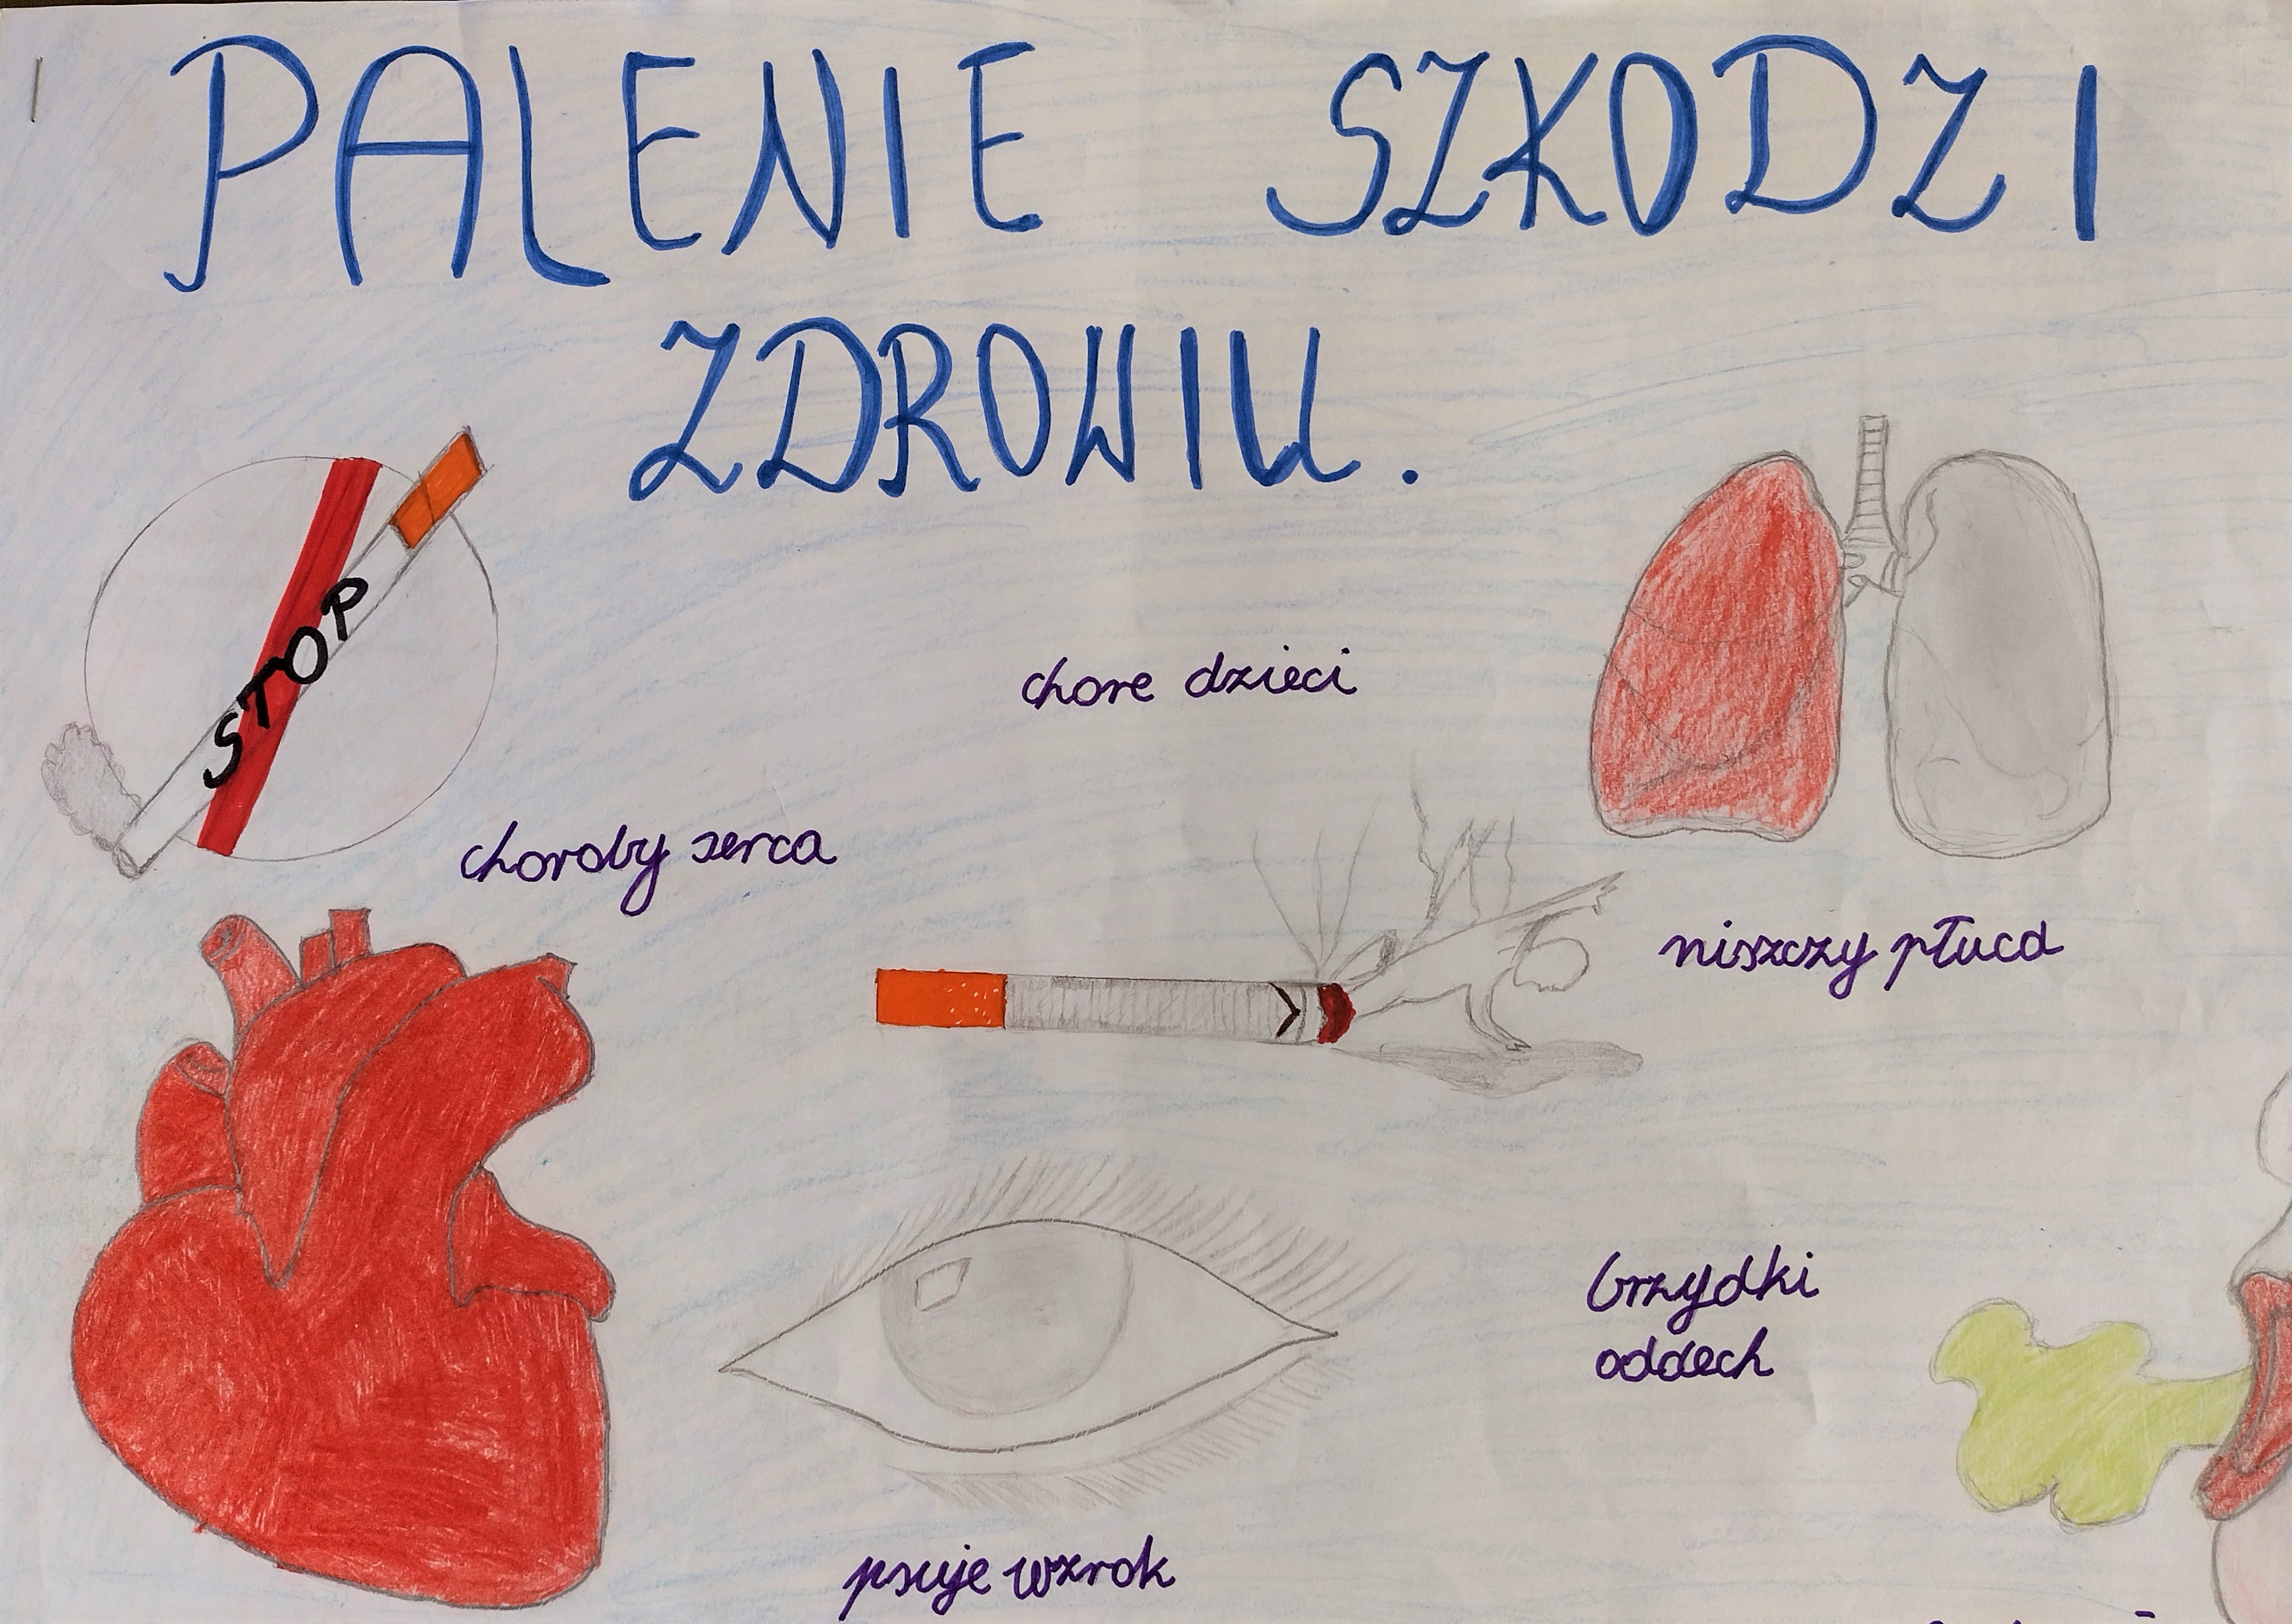 PALENIE SZKODZI
ZDROWIU.
STOP
chore dzieci
choroby serca
niszczy płuca
brzydki
oddech
psuje wzrok